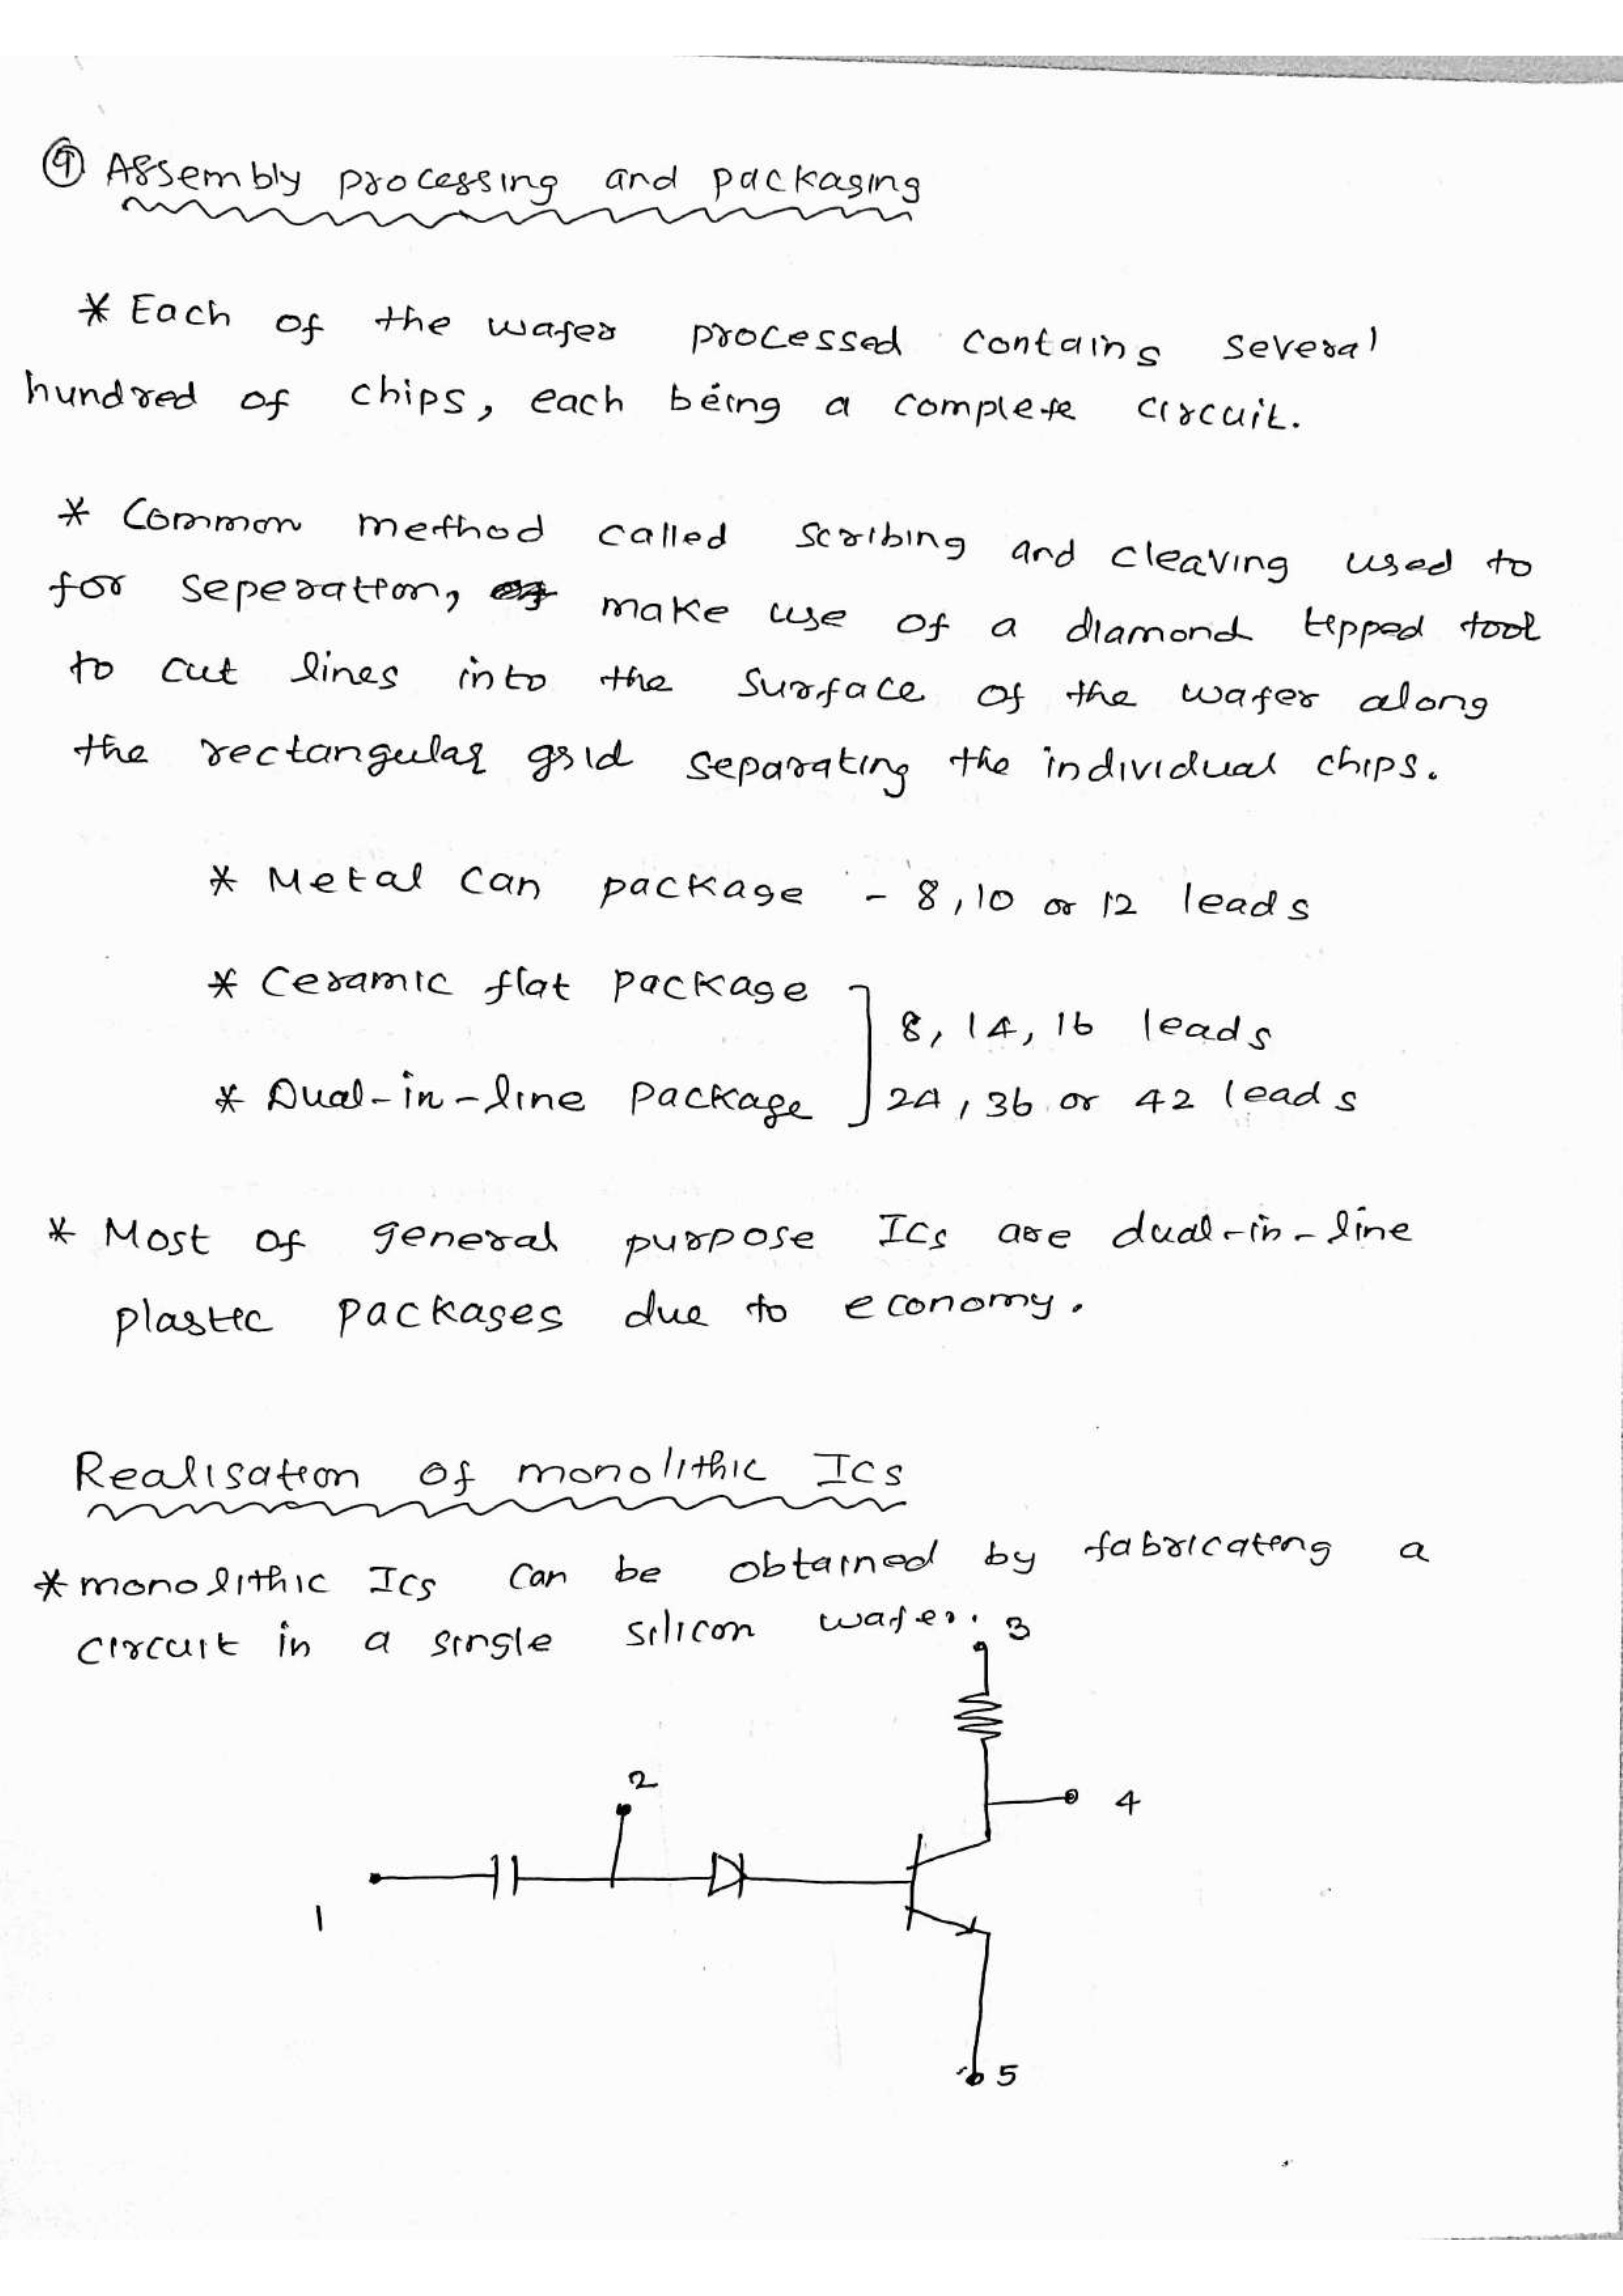 9 Assembly processing and packaging
* Each of the wafer processed contains several
hundred of chips, each being a complete circuit.
* Common method called scribing and cleaving used to
for seperation, make use of a diamond tipped tool
to cut lines into the surface of the wafer along
the rectangular grid separating the individual chips.
* Metal can package - 8, 10 or 12 leads
* Ceramic flat package
8, 14, 16 leads
* Dual-in-line package
24, 36 or 42 leads
* Most of general purpose ICs are dual-in-line
plastic packages due to economy.
Realisation of monolithic ICs
* monolithic ICs can be obtained by fabricating a
circuit in a single silicon wafer.
3
2
4
1
5